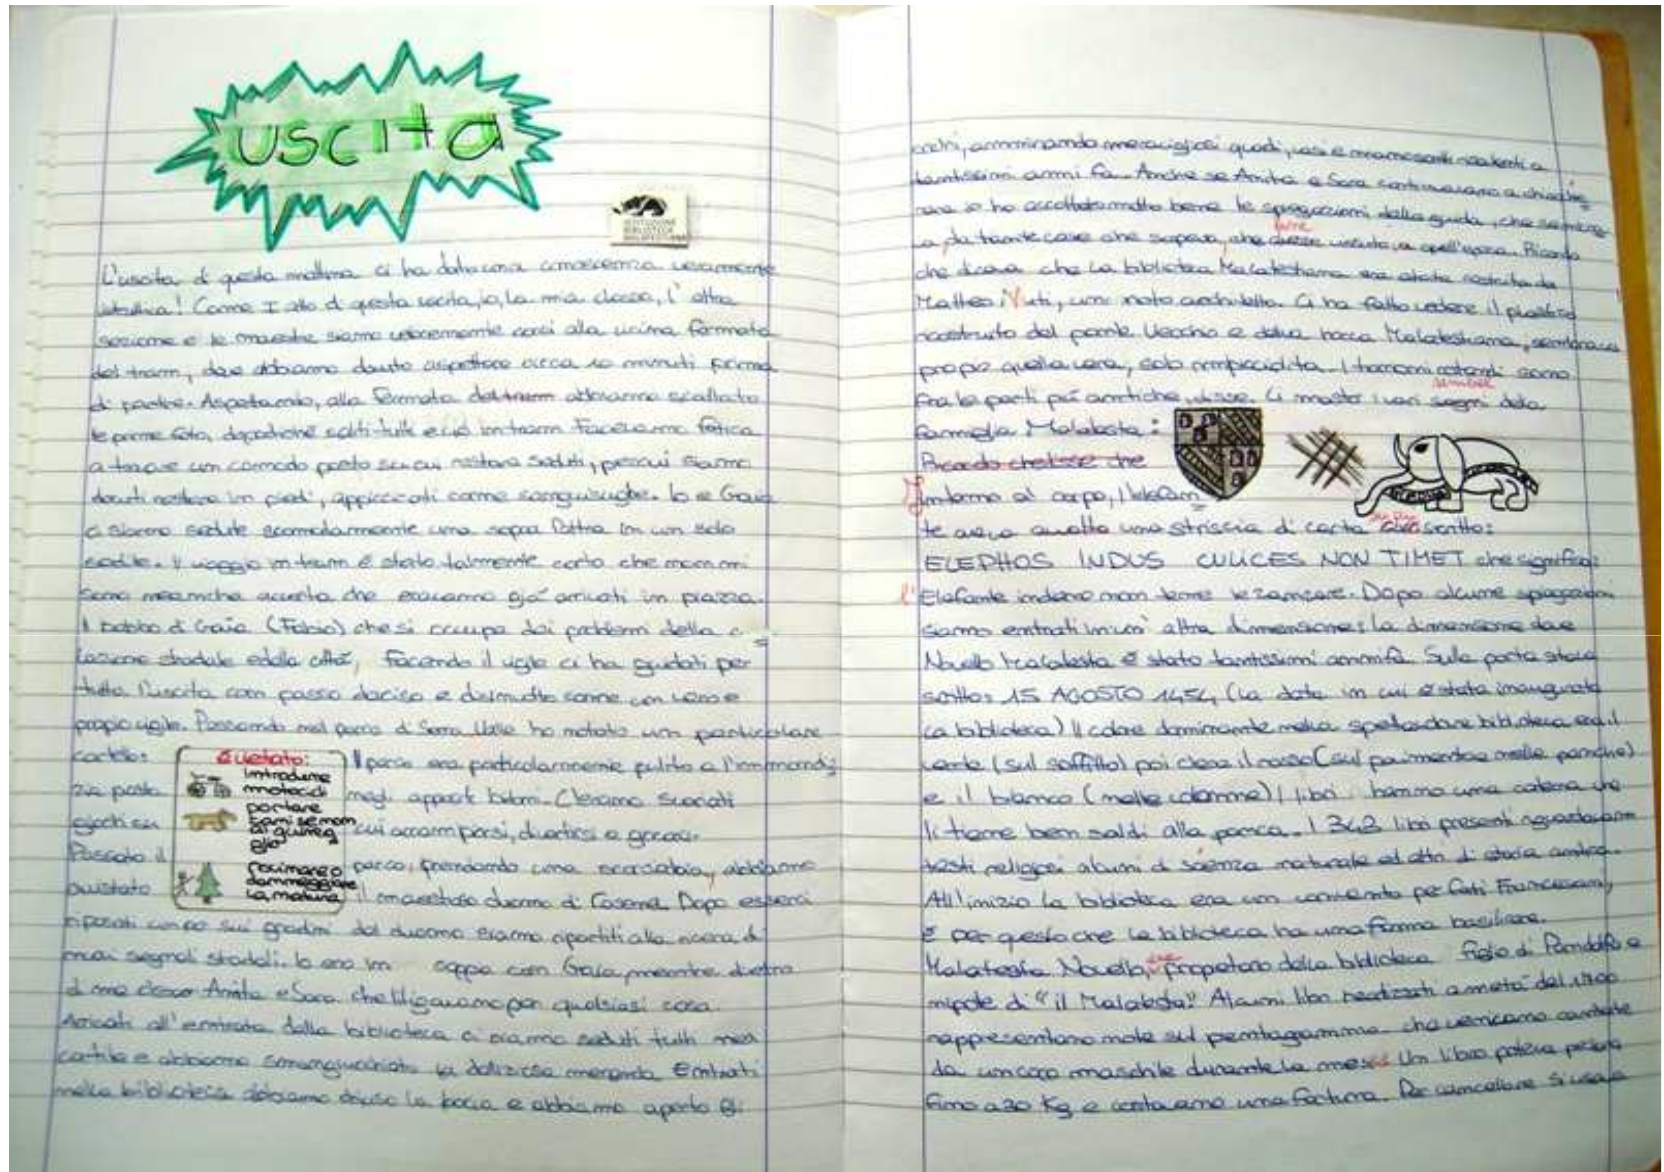 uscita
ISTITUZIONE
BIBLIOTECA
MALATESTIANA
L'uscita di questa mattina ci ha dato una conoscenza veramente
istruttiva! Come I atto di questa uscita, io, la mia classe, l'altra
sezione e le maestre siamo velocemente corsi alla vicina fermata
del tram, dove abbiamo dovuto aspettare circa 10 minuti prima
di partire. Aspettando, alla fermata del tram abbiamo scattato
le prime foto, dopodiché saliti tutti in tram facevamo fatica
a trovare un comodo posto su cui restare seduti, percui siamo
dovuti restare in piedi, appiccicati come sanguisughe. Io e Gaia
ci siamo sedute scomodamente una sopra l'altra in un solo
sedile. Il viaggio in tram è stato talmente corto che non mi
sono neanche accorta che eravamo già arrivati in piazza.
Il babbo di Gaia (Fabio) che si occupa dei problemi della
stradale e della città, facendo il vigile ci ha guidati per
tutta l'uscita con passo deciso e disinvolto come un vero e
proprio vigile. Passando nel parco di Serra Valle ho notato un particolare
cartello: Il parco era particolarmente pulito e l'immondi
zia posta negli appositi bidoni. C'erano svariati
giochi su cui arrampicarsi, divertirsi e giocare.
Passato il parco, prendendo una scorciatoia, abbiamo
avvistato il maestoso duomo di Cesena. Dopo esserci
È vietato:
introdurre
motocicli
portare
cani se non
al guinzag
glio
rovinare o
danneggiare
la natura
riposati un po sui gradini del duomo eravamo ripartiti alla ricerca di
nuovi segnali stradali. Io ero in coppia con Gaia mentre dietro
di me c'erano Anita e Sara che litigavano per qualsiasi cosa.
Arrivati all'entrata della biblioteca ci siamo seduti tutti nel
cortile e abbiamo sgranocchiato la deliziosa merenda. Entrati
nella biblioteca abbiamo chiuso la bocca e abbiamo aperto gli
occhi, ammirando meravigliosi quadri, vasi e manoscritti risalenti a
tantissimi anni fa. Anche se Anita e Sara continuavano a chiacchie
rare io ho ascoltato molto bene le spiegazioni della guida, che sembra
va da tante cose che sapeva, che avesse vissuto in quell'epoca. Ricordo
che diceva che la biblioteca Malatestiana era stata costruita da
Matteo Nuti, un noto architetto. Ci ha fatto vedere il plastico
costruito del ponte Vecchio e della rocca Malatestiana, sembrava
proprio quella vera, solo rimpicciolita. I torrioni rotondi sono
fra le parti più antiche, disse. Ci mostrò i vari segni della
famiglia Malatesta:
Ricordo che disse che
Intorno al corpo, l'elefan
te aveva avvolto una striscia di carta con scritto:
ELEPHOS INDUS CULICES NON TIMET che significa:
l'Elefante indiano non teme le zanzare. Dopo alcune spiegazioni
siamo entrati in un'altra dimensione: la dimensione dove
Novello Malatesta è stato tantissimi anni fa. Sulla porta stava
scritto: 15 AGOSTO 1454 (la data in cui è stata inaugurata
la biblioteca) Il colore dominante nella spettacolare biblioteca era il
verde (sul soffitto) poi c'era il rosso (sul pavimento e nelle panche)
e il bianco (nelle colonne) I libri hanno una catena che
li tiene ben saldi alla panca. I 343 libri presenti riguardavano
testi religiosi alcuni di scienza naturale ed altri di storia antica.
All'inizio la biblioteca era un convento per frati Francescani,
è per questo che la biblioteca ha una forma basilicare.
Malatesta Novello, proprietario della biblioteca figlio di Pandolfo e
nipote di "il Malatesta". Alcuni libri realizzati a metà del 1400
rappresentano note sul pentagramma che venivano cantate
da un coro maschile durante la messa. Un libro poteva pesare
fino a 20 Kg e costavano una fortuna. Per cancellare si usava